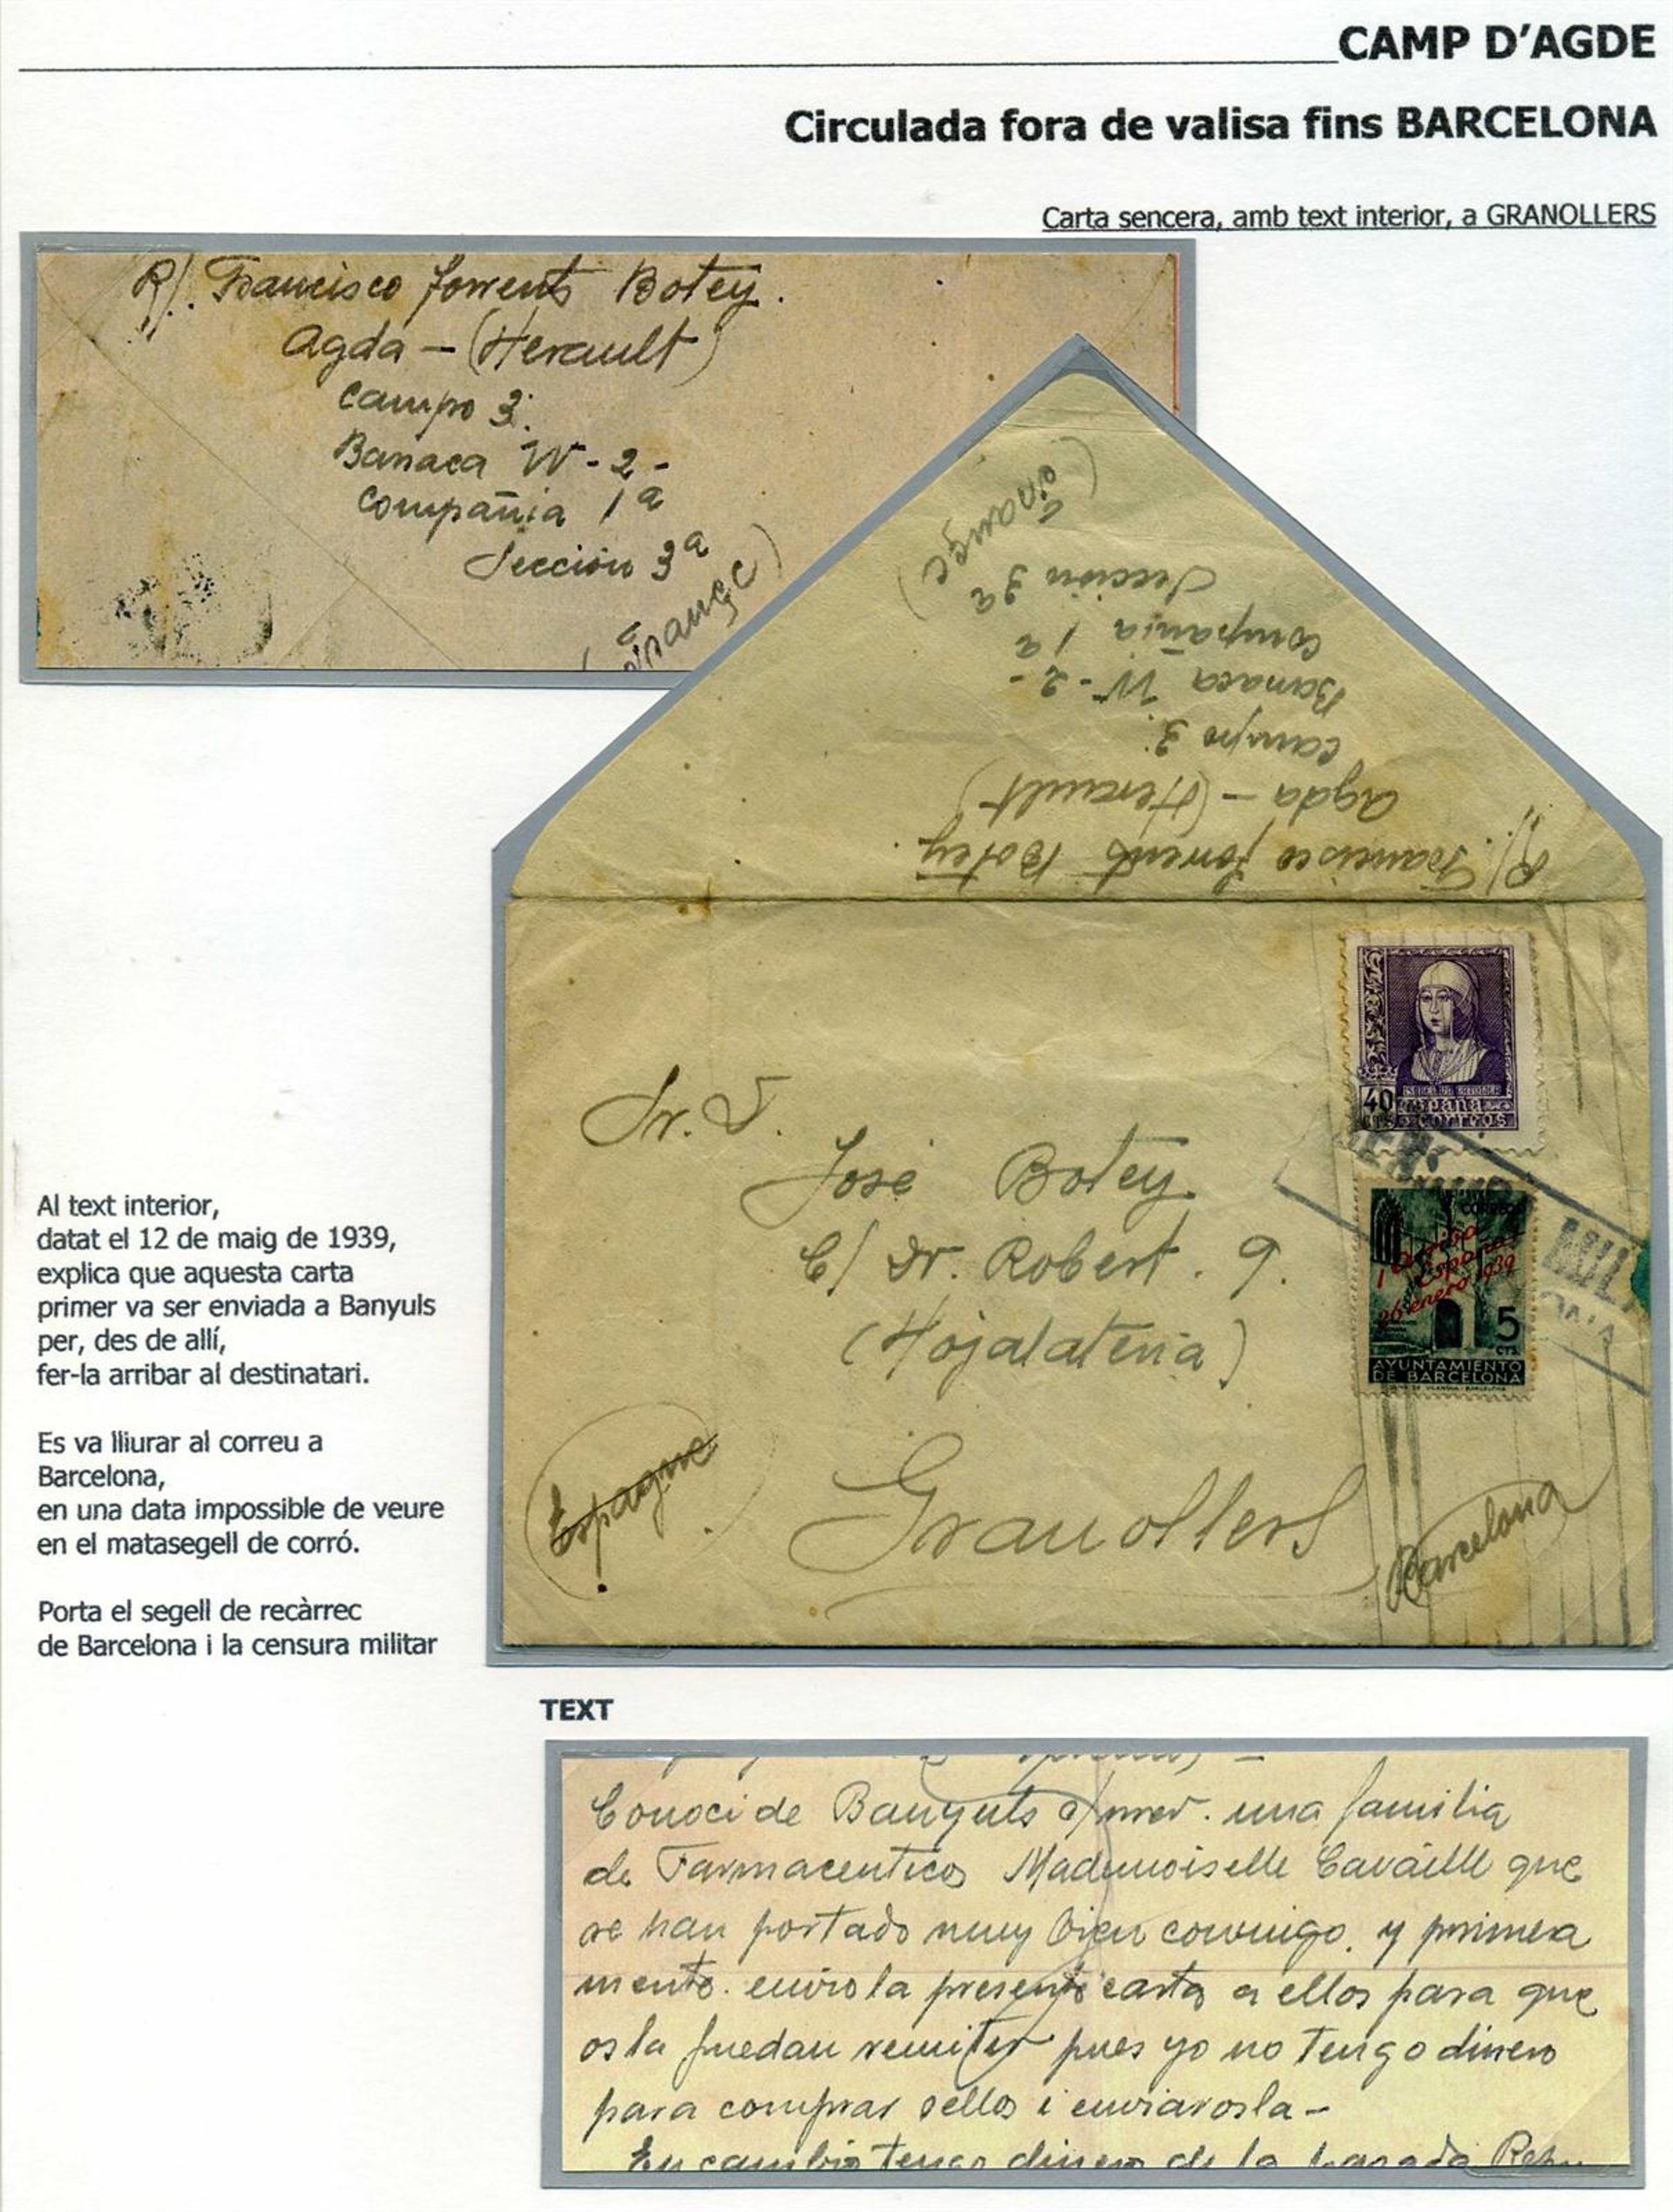 CAMP D'AGDE
Circulada fora de valisa fins BARCELONA
Carta sencera, amb text interior, a GRANOLLERS
R/. Francisco Torrents Botey.
Agda - (Herault)
Campo 3.
Barraca W-2-
Compañia 1ª
Sección 3ª
(France)
(France)
Sección 3ª
Compañia 1ª
Barraca W-2-
Campo 3.
Agda - (Herault)
R/. Francisco Torrents Botey.
40
CTS
España
CORREOS
Sr. D.
José Botey.
C/ Dr. Robert. 9.
(Hojalateria)
Granollers
(Espagne)
Barcelona
CORREOS
España
26 enero 1939
5
CTS.
AYUNTAMIENTO
DE BARCELONA
Al text interior,
datat el 12 de maig de 1939,
explica que aquesta carta
primer va ser enviada a Banyuls
per, des de allí,
fer-la arribar al destinatari.
Es va lliurar al correu a
Barcelona,
en una data impossible de veure
en el matasegell de corró.
Porta el segell de recàrrec
de Barcelona i la censura militar
TEXT
Conoci de Banyuls s/mer. una familia
de Farmaceuticos Mademoiselle Cavaillé que
se han portado muy bien conmigo. y primera
mento. envio la presente carta a ellos para que
os la puedan remiter pues yo no tengo dinero
para comprar sellos i enviarosla -
En cambio tengo dinero de la